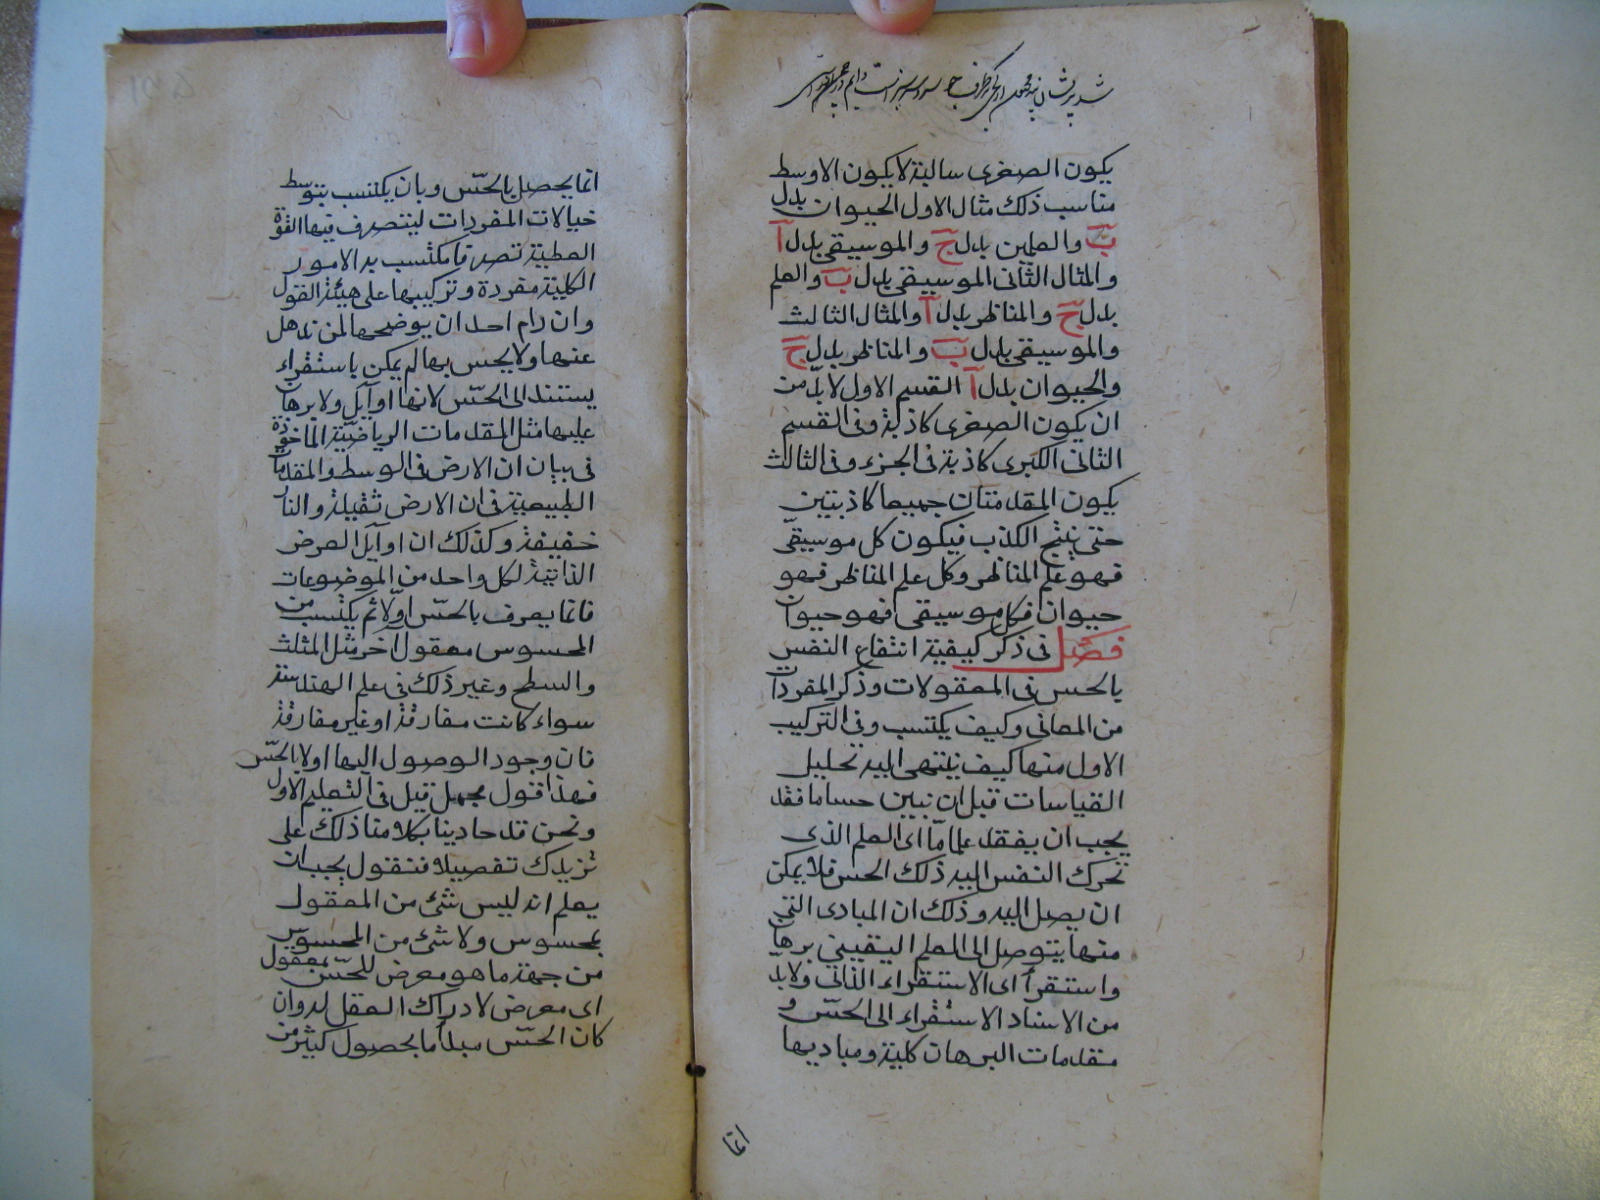 يكون الصغرى سالبة لا يكون الاوسط
مناسب ذلك مثال الاول الحيوان بدل
ب والعلمين بدل ج والموسيقى بدل آ
والمثال الثانى الموسيقى بدل ب والعلم
بدل ج والمناظر بدل آ والمثال الثالث
والموسيقى بدل ب والمناظر بدل ج
والحيوان بدل آ القسم الاول لا بدّ من
ان يكون الصغرى كاذبة وفى القسم
الثانى الكبرى كاذبة فى الجزء وفى الثالث
يكون المقدمتان جميعا كاذبتين
حتى ينتج الكذب فيكون كل موسيقى
فهو علم المناظر وكل علم المناظر فهو
حيوان فكل موسيقى فهو حيوان
فصل فى ذكر كيفية انتفاع النفس
بالحس فى المعقولات وذكر المفردات
من المعانى وكيف يكتسب وفى التركيب
الاول منها كيف ينتهى اليه تحليل
القياسات قيل ان نبين حسا ما فقد
يجب ان يفقد علما مّا اى العلم الذى
تحرك النفس اليه ذلك الحس فلا يمكن
ان يصل اليه وذلك ان المبادى التى
منها يتوصل الى العلم اليقينى برهان
واستقرأ اى الاستقراء الذاتى ولا بدّ
من الاسناد الاستقراء الى الحسّ و
مقدمات البرهان كلية ومباديها
انما
انما يحصل بالحسّ وبان يكتسب بتوسط
خيالات المفردات ليتصرف فيها القوّة
العقلية تصرفا مكتسب به الامور
الكلية مفردة وتركيبها على هيئة القول
وان رام احد ان يوضحها لمن تذهل
عنها ولا يحس بها لم يمكن باستقراء
يستند الى الحسّ لانها اوآيل ولا برهان
عليها مثل المقدمات الرياضيّة المأخوذة
فى بيان ان الارض فى الوسط والمقدمات
الطبيعية فى ان الارض ثقيلة والنار
خفيفة وكذلك ان اوآيل العرض
الذاتية لكل واحد من الموضوعات
فانما يعرف بالحسّ اوّلا ثم يكتسب من
المحسوس معقول آخر مثل المثلث
والسطح وغير ذلك فى علم الهندسة
سواء كانت مفارقة او غير مفارقة
فان وجود الوصول اليها اولا بالحسّ
فهذا قول مجمل قيل فى التعليم الاول
ونحن قد حاذينا بكلامنا ذلك على
نزيدك تفصيلا فنقول يجب ان
يعلم انه ليس شئ من المعقول
بمحسوس ولا شئ من المحسوس
من جهة ما هو معرض للحسّ بمعقول
اى معرض لادراك العقل له وان
كان الحسّ مبدأ ما لحصول كثير من